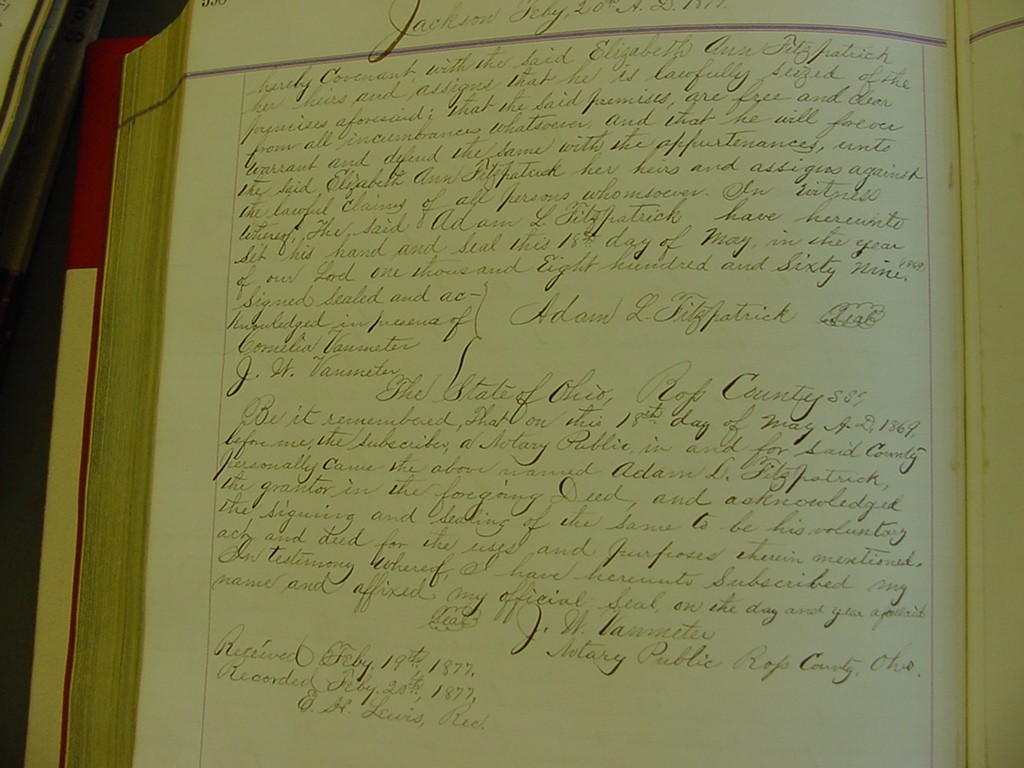 Jackson Feby, 20th A. D. 1877.
hereby Covenant with the said Elizabeth Ann Fitzpatrick
her heirs and, assigns that he is lawfully seized of the
premises aforesaid; that the said premises, are free and clear
from all incumbrances whatsoever. and that he will forever
warrant and defend the same with the appurtenances, unto
the said Elizabeth Ann Fitzpatrick her heirs and assigns against
the lawful claims of all persons whomsoever. In Witness
Whereof, The, said Adam L Fitzpatrick have hereunto
set his hand and seal this 18th day of May, in the year
of our Lord one thousand Eight hundred and Sixty Nine, (1869)
Signed Sealed and ac-
knowledged in presence of Adam L. Fitzpatrick Seal
Cornelia Vanmeter
J. W. Vanmeter
The State of Ohio, Ross County SS,
Be it remembered, That on this 18th day of May A. D, 1869,
before me, the subscriber, a Notary Public, in and for Said County
personally came the above named Adam L. Fitzpatrick,
the grantor, in the foregoing Deed, and acknowledged
the signing and sealing of the same to be his voluntary
act, and deed for the uses and purposes therein mentioned.
In testimony Whereof, I have hereunto Subscribed my
name and affixed my official, Seal, on the day and year aforesaid
Seal J. W. Vanmeter
Notary Public Ross County, Ohio.
Received Feby, 19th, 1877,
Recorded Feby, 20th, 1877,
E. H. Lewis, Rec.